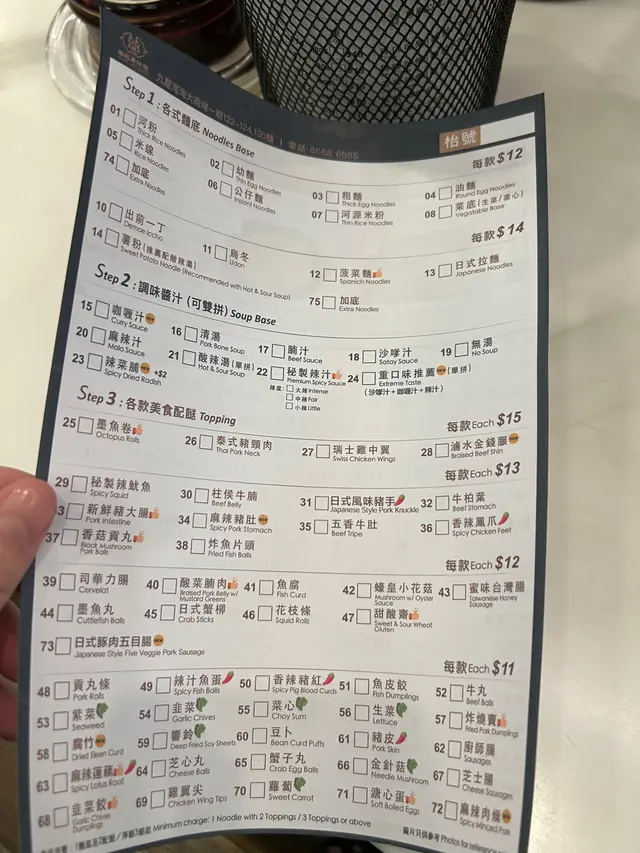 九龍灣淘大商場一期122-124,130鋪 | 電話:8586 6565
Step 1 : 各式麵底 Noodles Base
枱號
每款 $12
01 河粉 Thick Rice Noodles
02 幼麵 Thin Egg Noodles
03 粗麵 Thick Egg Noodles
04 油麵 Round Egg Noodles
05 米線 Rice Noodles
06 公仔麵 Instant Noodles
07 河源米粉 Thin Rice Noodles
08 菜底(生菜/菜心) Vegatable Base
74 加底 Extra Noodles
每款 $14
10 出前一丁 Demae Iccho
11 烏冬 Udon
12 菠菜麵 Spanich Noodles
13 日式拉麵 Japanese Noodles
14 薯粉(推薦配酸辣湯) Sweet Potato Noodle (Recommended with Hot & Sour Soup)
75 加底 Extra Noodles
Step 2 : 調味醬汁 (可雙拼) Soup Base
15 咖喱汁 Curry Sauce
16 清湯 Pork Bone Soup
17 腩汁 Beef Sauce
18 沙嗲汁 Satay Sauce
19 無湯 No Soup
20 麻辣汁 Mala Sauce
21 酸辣湯(單拼) Hot & Sour Soup
22 秘製辣汁 Premium Spicy Sauce
辣度: 大辣 Intense
中辣 Fair
小辣 Little
23 辣菜脯 +$2 Spicy Dried Radish
24 重口味推薦 (單拼) Extreme Taste
(沙嗲汁+咖喱汁+辣汁)
Step 3 : 各款美食配餸 Topping
每款Each $15
25 墨魚卷 Octopus Rolls
26 泰式豬頸肉 Thai Pork Neck
27 瑞士雞中翼 Swiss Chicken Wings
28 滷水金錢𦟌 Braised Beef Shin
每款Each $13
29 秘製辣魷魚 Spicy Squid
30 柱侯牛腩 Beef Belly
31 日式風味豬手 Japanese Style Pork Knuckle
32 牛柏葉 Beef Stomach
33 新鮮豬大腸 Pork Intestine
34 麻辣豬肚 Spicy Pork Stomach
35 五香牛肚 Beef Tripe
36 香辣鳳爪 Spicy Chicken Feet
37 香菇貢丸 Black Mushroom Pork Balls
38 炸魚片頭 Fried Fish Balls
每款Each $12
39 司華力腸 Cervelat
40 酸菜腩肉 Braised Pork Belly w/ Mustard Greens
41 魚腐 Fish Curd
42 蠔皇小花菇 Mushroom w/ Oyster Sauce
43 蜜味台灣腸 Taiwanese Honey Sausage
44 墨魚丸 Cuttlefish Balls
45 日式蟹柳 Crab Sticks
46 花枝條 Squid Rolls
47 甜酸齋 Sweet & Sour Wheat Gluten
73 日式豚肉五目腸 Japanese Style Five Veggie Pork Sausage
每款Each $11
48 貢丸條 Pork Rolls
49 辣汁魚蛋 Spicy Fish Balls
50 香辣豬紅 Spicy Pig Blood Curds
51 魚皮餃 Fish Dumplings
52 牛丸 Beef Balls
53 紫菜 Seaweed
54 韭菜 Garlic Chives
55 菜心 Choy Sum
56 生菜 Lettuce
57 炸燒賣 Fried Pork Dumplings
58 腐竹 Dried Bean Curd
59 響鈴 Deep Fried Soy Sheets
60 豆卜 Bean Curd Puffs
61 豬皮 Pork Skin
62 廚師腸 Sausages
63 麻辣蓮藕 Spicy Lotus Root
64 芝心丸 Cheese Balls
65 蟹子丸 Crab Egg Balls
66 金針菇 Needle Mushroom
67 芝士腸 Cheese Sausages
68 韭菜餃 Garlic Chives Dumplings
69 雞翼尖 Chicken Wing Tips
70 蘿蔔 Sweet Carrot
71 溏心蛋 Soft Boiled Eggs
72 麻辣肉燥 Spicy Minced Pork
Minimum charge: 1 Noodle with 2 Toppings / 3 Toppings or above
圖片只供參考 Photos for reference